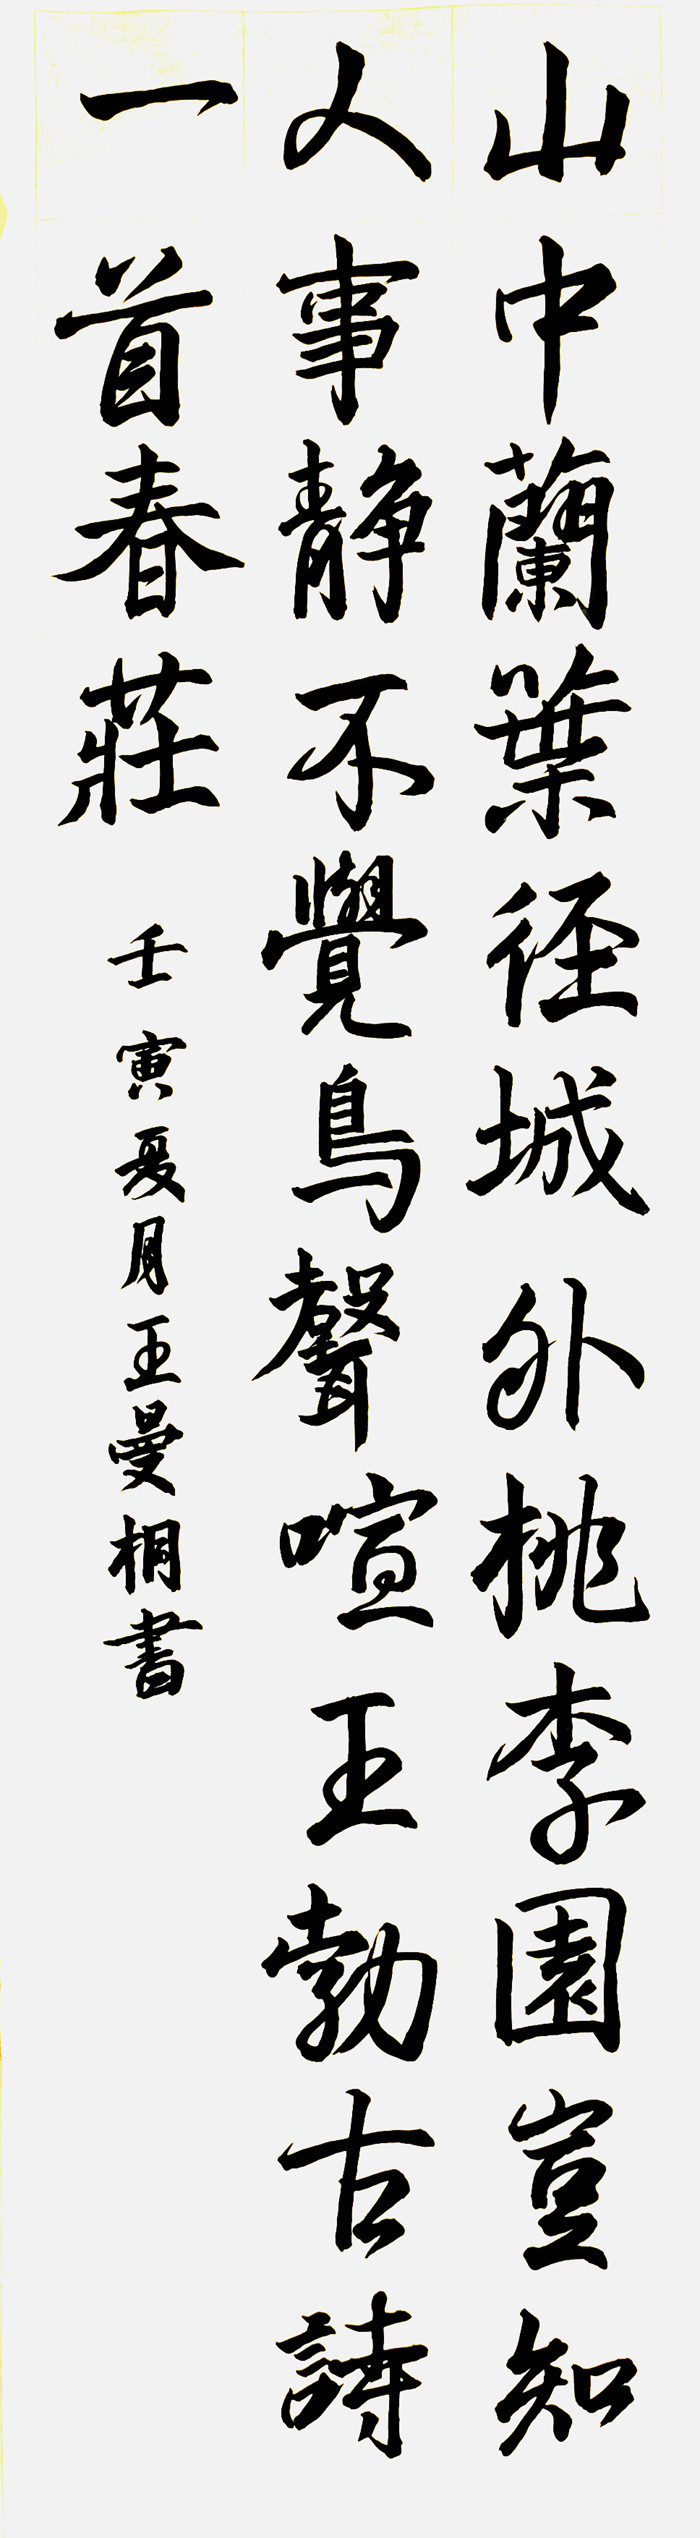 山中蘭葉径城外桃李園豈知
人事静不覺鳥聲喧王勃古詩
一首春莊
壬寅夏月王曼桐書